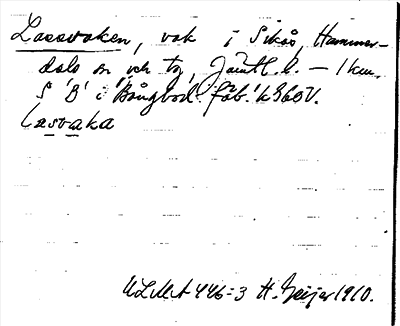 Lassvaken, vak i Sikås, Hammer-
dals sn och tg, Jämtl. l. — 1 km.
S 'B' i 'Bångbod. fäb.' k 36 öV.
lasvaka
ULMA 446:3 H. Geijer 1910.